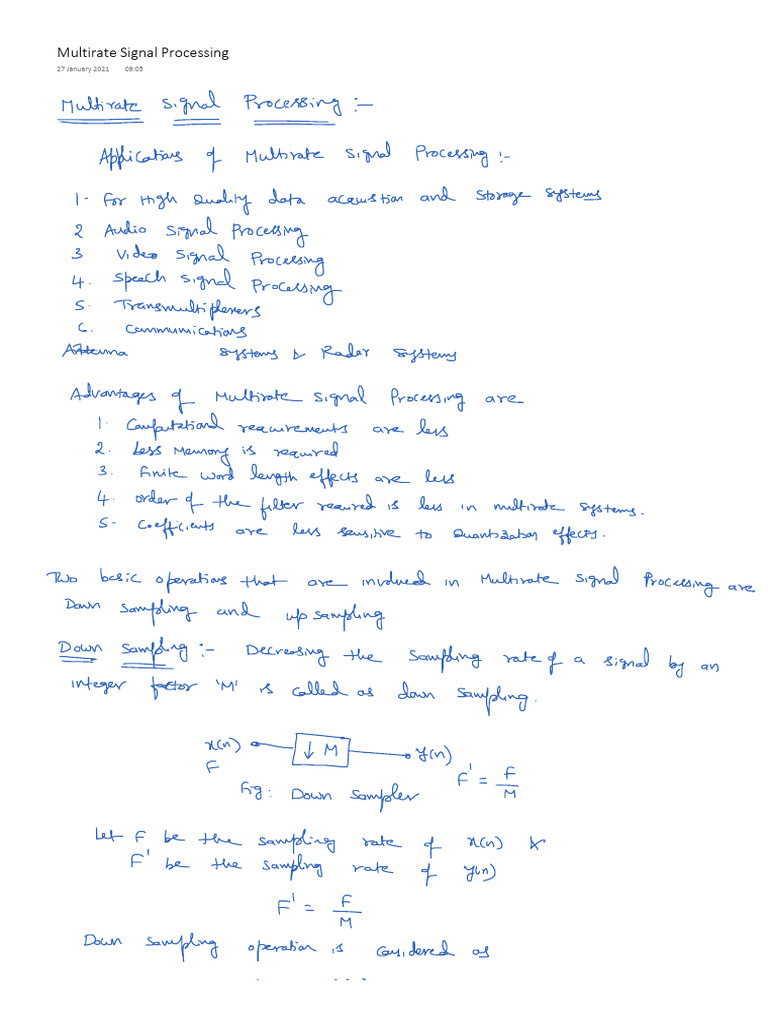 Multirate Signal Processing
27 January 2021 09:05
Multirate Signal Processing :-
Applications of Multirate Signal Processing :-
1- For High Quality data acqustion and Storage Systems
2 Audio Signal Processing
3 Video Signal Processing
4. Speech Signal Processing
5. Transmultiplexers
6. Communications
Antenna Systems & Radar Systems
Advantages of Multirate Signal Processing are
1. Computational requirements are less
2. Less Memory is required
3. Finite word length effects are less
4. order of the filter required is less in multirate systems.
5- Coefficients are less sensitive to Quantization effects.
Two basic operations that are involved in Multirate Signal Processing are
Down Sampling and up sampling
Down Sampling :- Decreasing the Sampling rate of a signal by an
integer factor 'M' is called as down sampling.
x(n) ↓ M y(n)
F F' = F/M
Fig: Down Sampler
Let F be the sampling rate of x(n) &
F' be the sampling rate of y(n)
F' = F/M
Down sampling operation is considered as